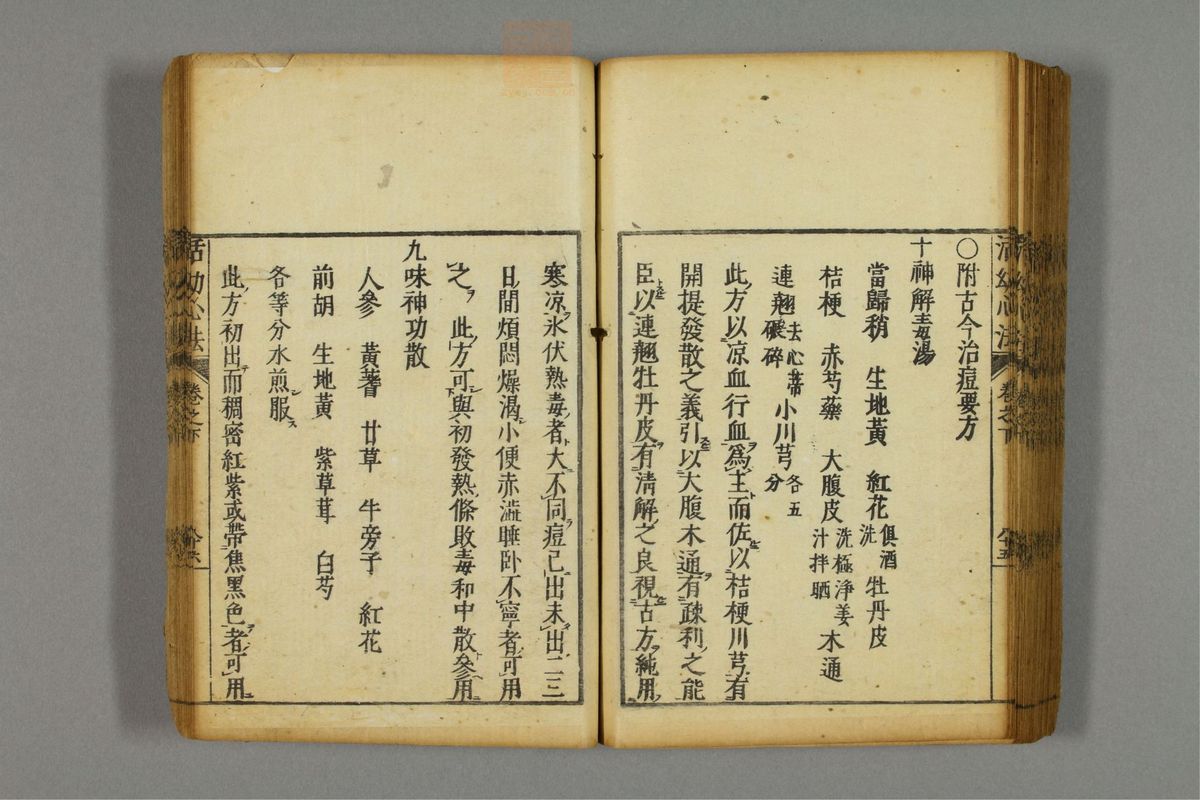 活幼心法 卷之下 八十五
〇附古今治痘要方
十神解毒湯
當歸稍 生地黃 紅花俱酒洗 牡丹皮
桔梗 赤芍藥 大腹皮洗極淨姜汁拌晒 木通
連翹去心蒂碾碎 小川芎各五分
此方以凉血行血爲主而佐以桔梗川芎有
開提發散之義引以大腹木通有疎利之能
臣以連翹牡丹皮有淸解之良視古方純用
寒凉氷伏熱毒者大不同痘已出未出二三
日間煩悶燥渴小便赤澁睡卧不寧者可用
之此方可與初發熱條敗毒和中散參用
九味神功散
人參 黃蓍 甘草 牛旁子 紅花
前胡 生地黃 紫草茸 白芍
各等分水煎服
此方初出而稠密紅紫或帶焦黑色者可用
活幼心法 卷之下